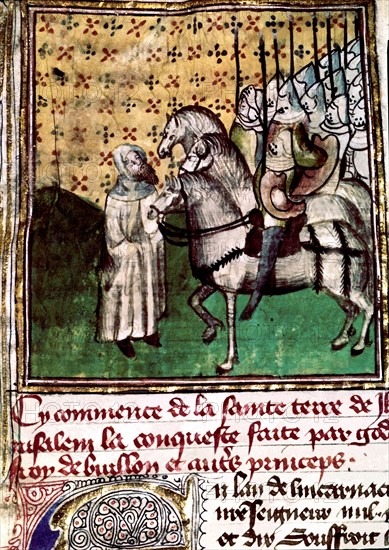 Cy commence de la sainte terre de Jh
rusalem la conqueste faite par god
froy de buillon et autrs princeps.
n lan de lincarnac
nre seigneur mil.
et dix Souffroit